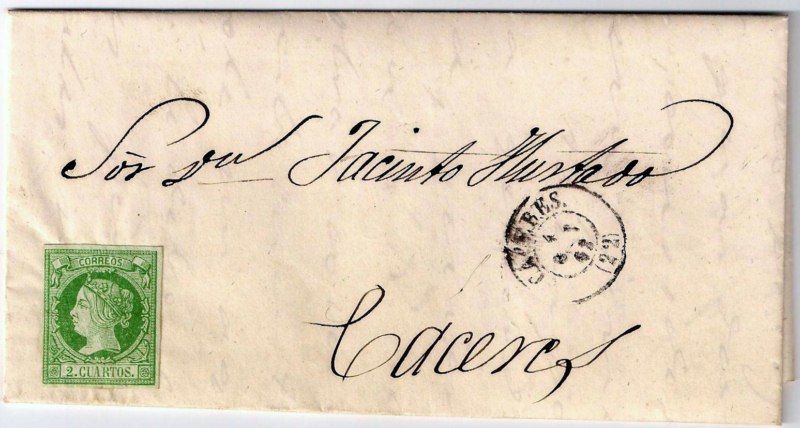 Sör. Dn Jacinto Hurtado
CACERES.
(22)
CORREOS
2. CUARTOS.
Caceres